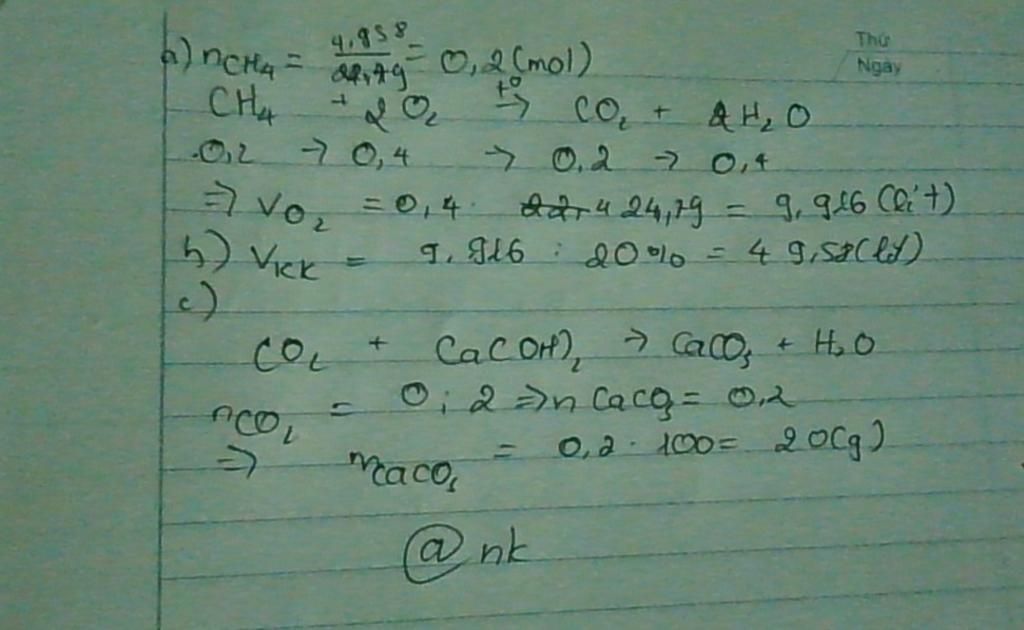 Thứ
Ngày
a) nCH₄ = 4,958/24,79 = 0,2 (mol)
CH₄ + 2O₂ t° → CO₂ + 2H₂O
0,2 → 0,4 → 0,2 → 0,4
=> VO₂ = 0,4 . 24,79 = 9,916 (lit)
b) VKK = 9,916 : 20% = 49,58 (lit)
c)
CO₂ + Ca(OH)₂ → CaCO₃ + H₂O
nCO₂ = 0,2 => nCaCO₃ = 0,2
=> mCaCO₃ = 0,2 . 100 = 20(g)
@nk